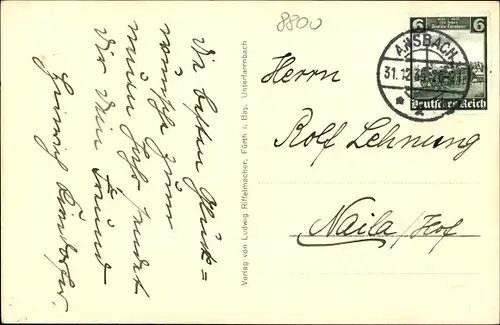 8800
Die besten Glück=
wünsche zum
neuen Jahr sendet
Dir Dein Freund
Heinrich
Verlag von Ludwig Riffelmacher, Fürth i. Bay. Unterfarrnbach
6 6
ANSBACH
31.12.35
Deutsches Reich
Herrn
Rolf Lehnung
Naila/Hof